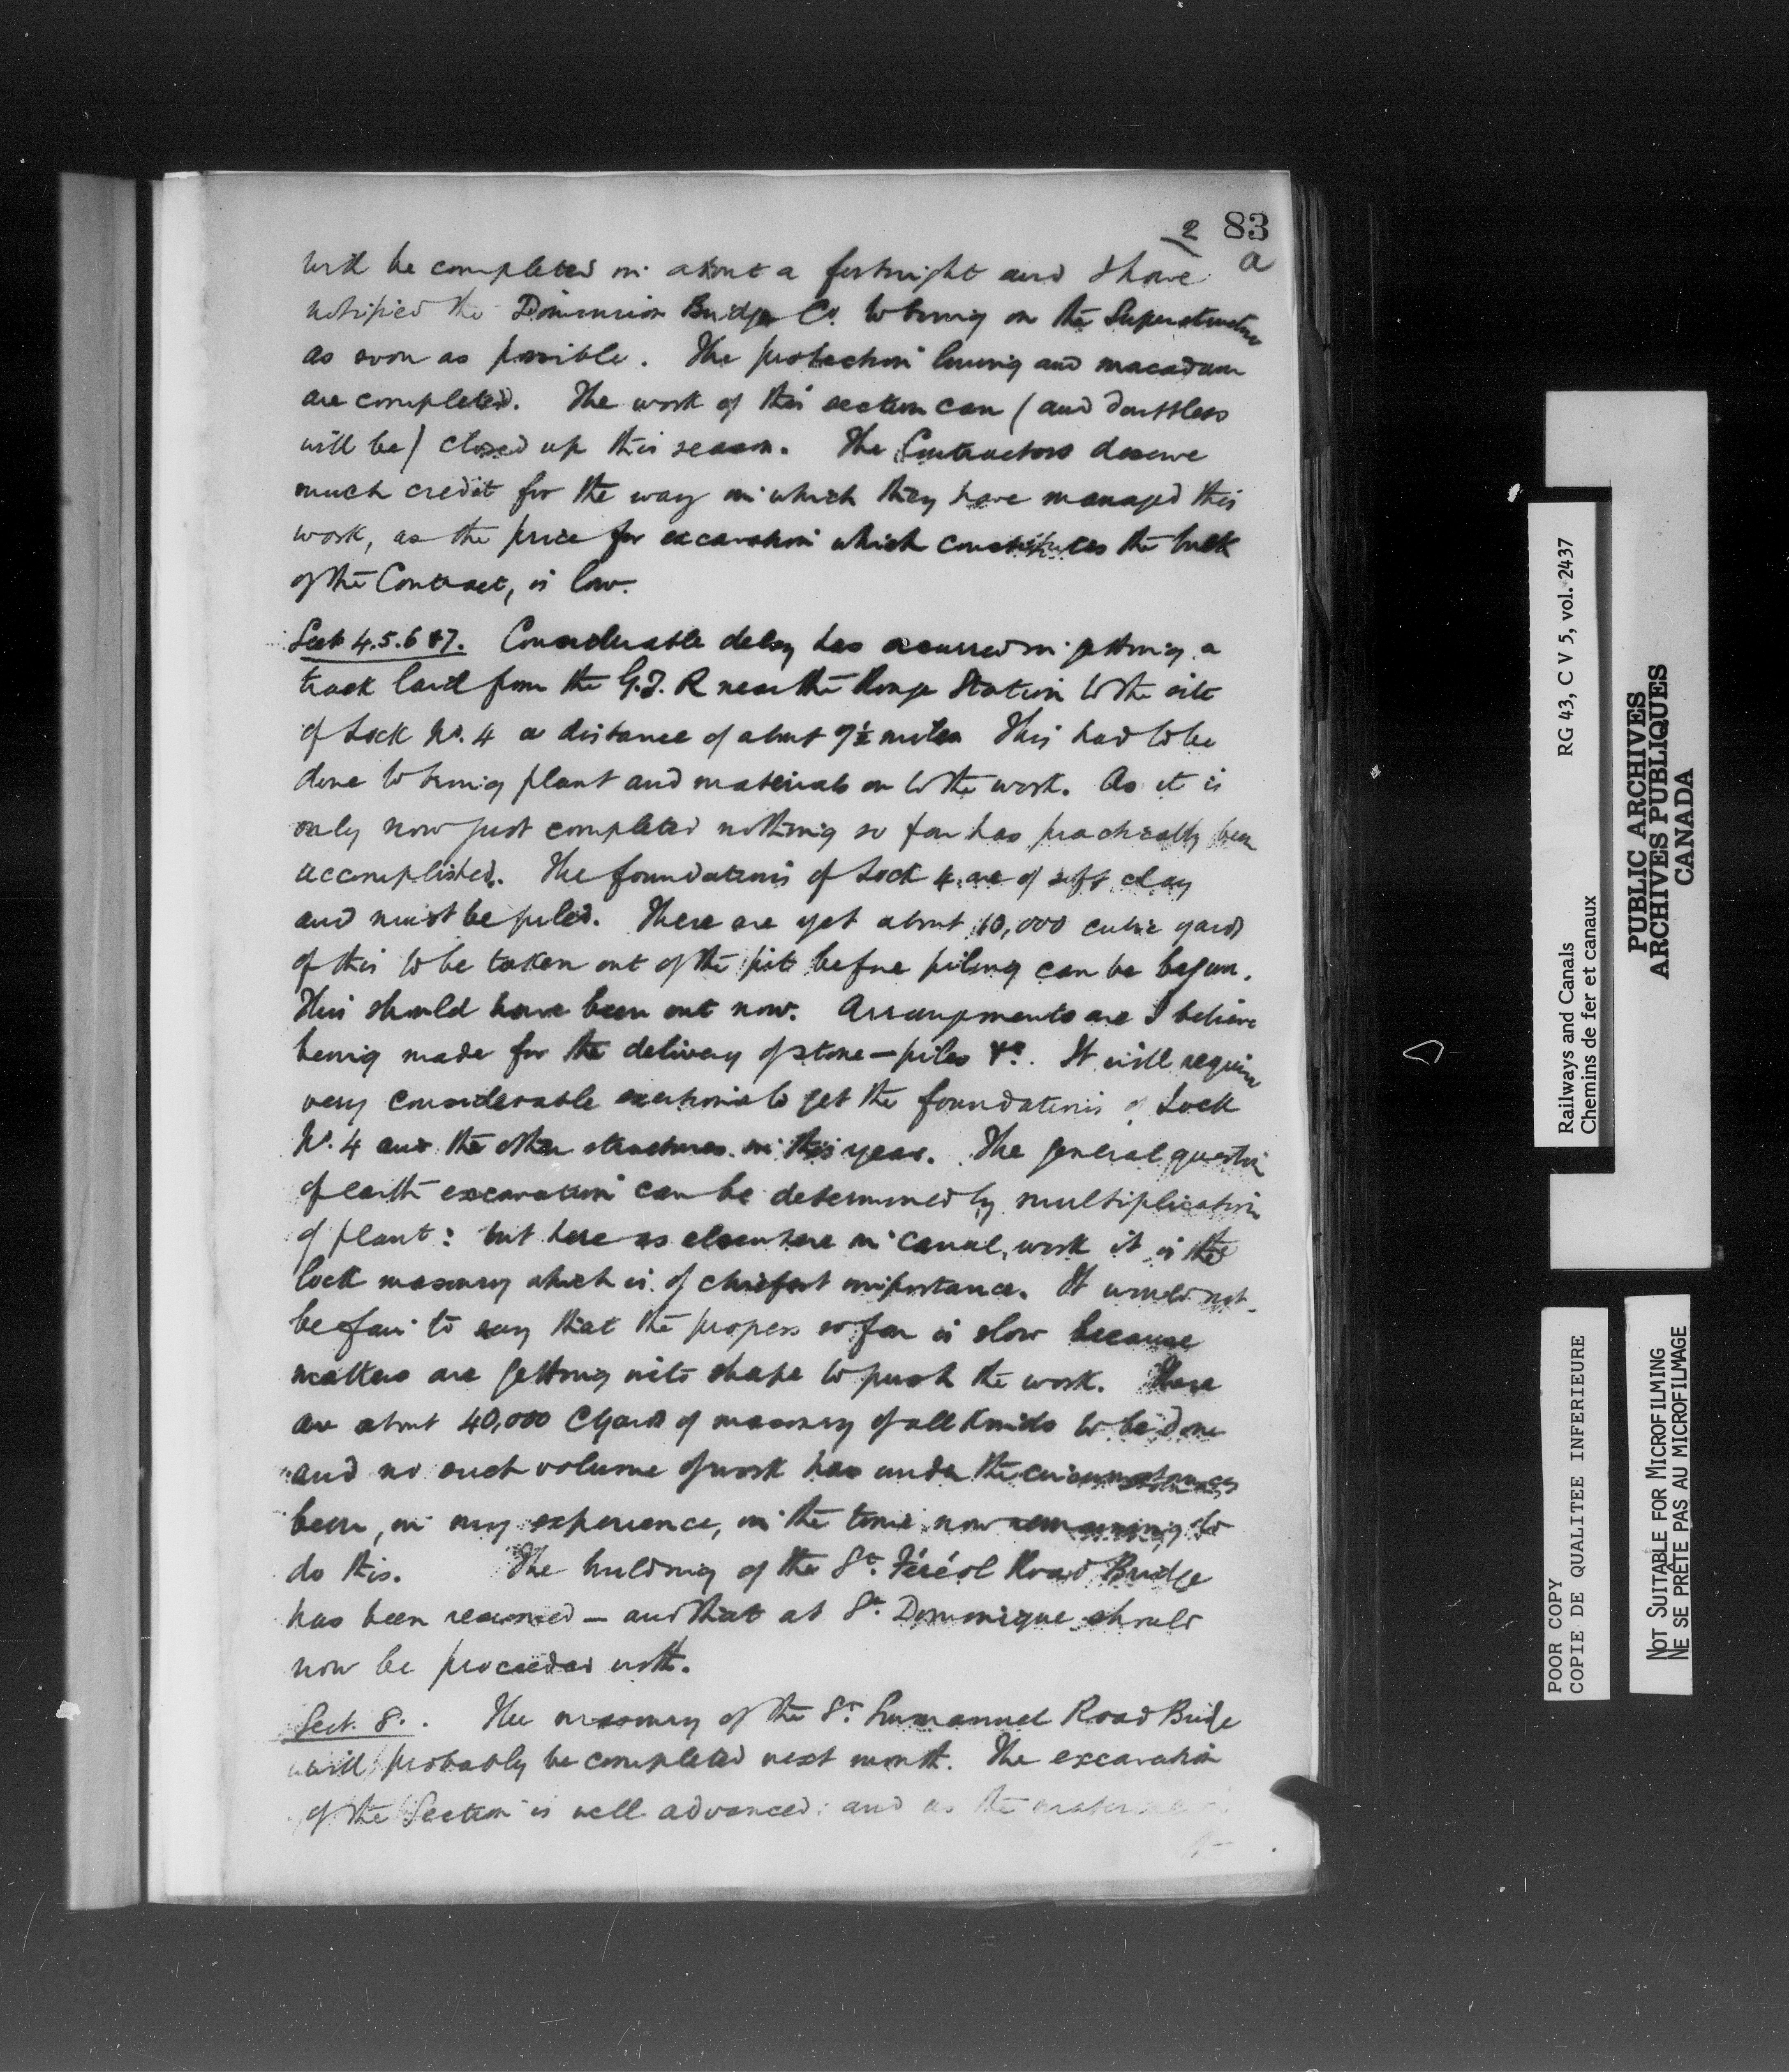 2 83
a
will be completed in about a fortnight and I have
notified the Dominion Bridge Co. to bring on the Superstructure
as soon as possible. The protection lining and macadam
are completed. The work of this section can (and doubtless
will be) closed up this season. The Contractors deserve
much credit for the way in which they have managed this
work, as the price for excavation which constitutes the bulk
of the Contract, is low.
Sect 4.5.6 & 7. Considerable delay has occurred in getting a
track laid from the G.T.R near the Station to the site
of Lock No. 4 a distance of about miles This had to be
done to bring plant and materials on to the work. As it is
only now just completed nothing so far has practically been
accomplished. The foundations of Lock 4 are of soft clay
and must be piled. There are yet about 10,000 cubic yards
of this to be taken out of the pit before piling can be begun.
This should have been out now. Arrangements are I believe
being made for the delivery of stone – piles &c. It will require
very considerable exertions to get the foundations of Lock
No. 4 and the other structures in this year. The general question
of earth excavation can be determined by multiplication
of plant: but here as elsewhere in canal work it is the
lock masonry which is of chiefest importance. It would not
be fair to say that the progress so far is slow because
matters are getting into shape to push the work. There
are about 40,000 C yards of masonry of all kinds to be done
and no such volume of work has under the circumstances
been, in my experience, in the time now remaining to
do this. The building of the St. Féréol Road Bridge
has been resumed – and that at St. Dominique should
now be proceeded with.
Sect. 8. The masonry of the St. Emmanuel Road Bridge
will probably be completed next month. The excavation
of the Section is well advanced: and as the material
Railways and Canals RG 43, C V 5, vol. 2437
Chemins de fer et canaux
PUBLIC ARCHIVES
ARCHIVES PUBLIQUES
CANADA
POOR COPY
COPIE DE QUALITEE INFERIEURE
NOT SUITABLE FOR MICROFILMING
NE SE PRÊTE PAS AU MICROFILMAGE